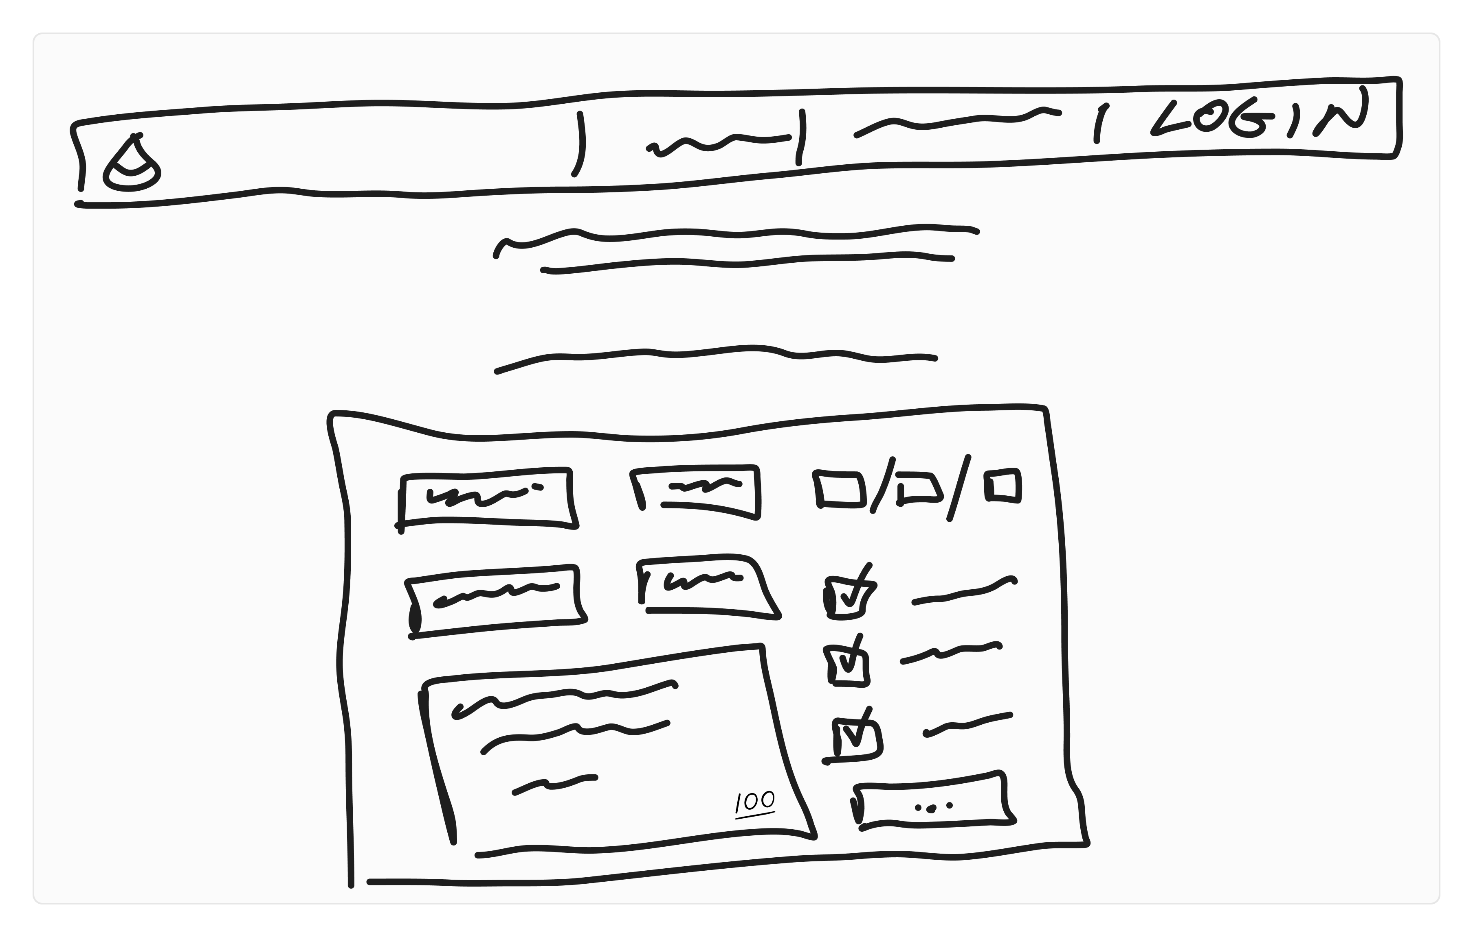 LOGIN
100